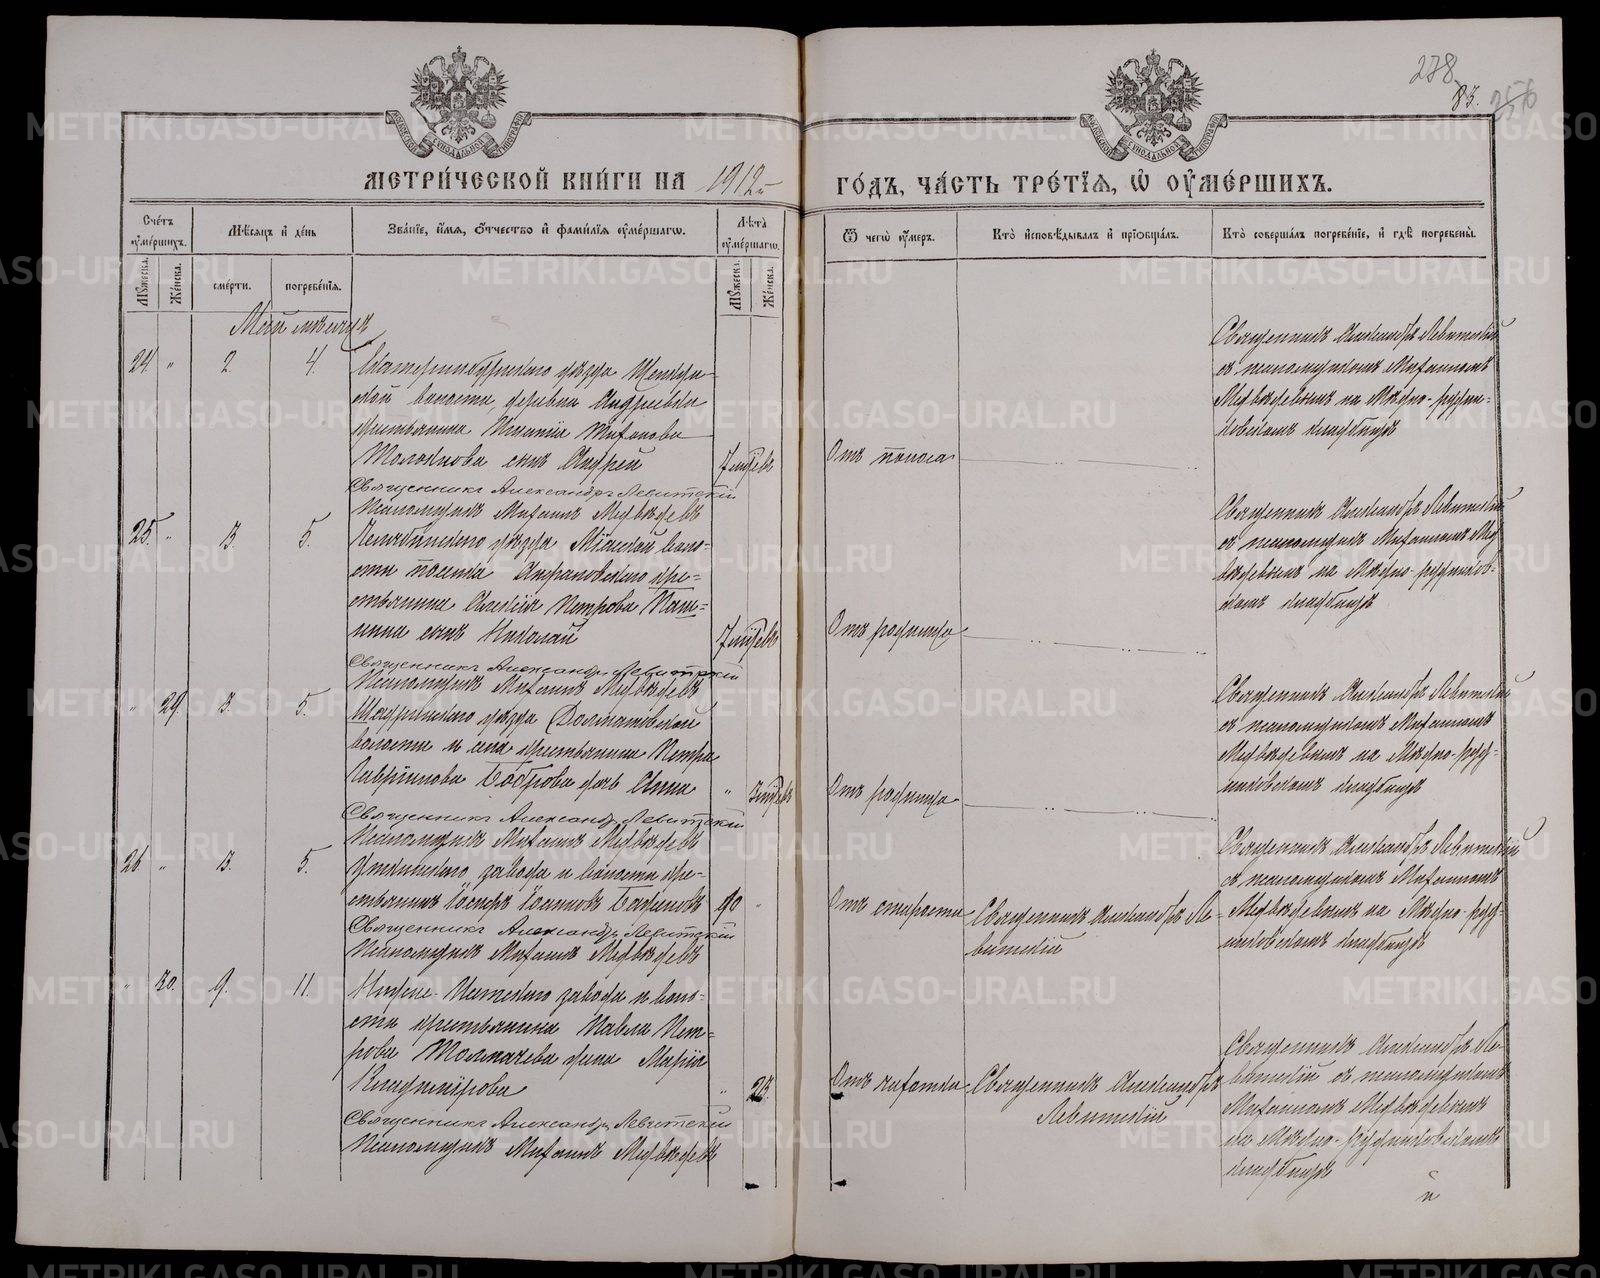 278
83.
256
МЕТРИ́ЧЕСКОЙ КНИ́ГИ НА 1912 ГО́ДЪ, ЧА́СТЬ ТРЕ́ТІЯ, Ѡ҆ ОУ҆МЕ́РШИХЪ.
Сче́тъ оу҆ме́ршихъ.
Мѣ́сяцъ и҆ де́нь
Зва́ніе, и҆́мя, о҆́тчество и҆ фами́лія оу҆ме́ршагѡ.
Лѣ́та оу҆ме́ршагѡ.
Ѿ чегѡ̀ оу҆́меръ.
Кто̀ и҆сповѣ́дывалъ и҆ пріобща́лъ.
Кто̀ соверша́лъ погребе́ніе, и҆ гдѣ̀ погребены̀.
Мꙋ́жеска.
Же́нска.
сме́рти.
погребе́нія.
Мꙋ́жеска.
Же́нска.
Май мѣсяцъ
24 " 2. 4.
Екатеринбургскаго уѣзда
волости, деревни Андреевки
крестьянина Игнатія Михаилова
сынъ Андрей
Отъ поноса
Священникъ Александръ Левитскій
съ псаломщикомъ Михаиломъ
Медвѣдевымъ на Мѣдно-рудни-
ковскомъ кладбищѣ
Священникъ Александръ Левитскій
Псаломщикъ Михаилъ Медвѣдевъ
25. " 3. 5.
Челябинскаго уѣзда Міасской воло-
сти кре-
стьянина Алексія Петрова
сынъ Николай
Отъ родимца
Священникъ Александръ Левитскій
съ псаломщикомъ Михаиломъ Мед-
вѣдевымъ на Мѣдно-рудников-
скомъ кладбищѣ
Священникъ Александръ Левитскій
Псаломщикъ Михаилъ Медвѣдевъ
" 29. 3. 5.
Шадринскаго уѣзда Долматовской
волости и села крестьянина Петра
Гавріилова Боброва дочь Анна
Отъ родимца
Священникъ Александръ Левитскій
съ псаломщикомъ Михаиломъ
Медвѣдевымъ на Мѣдно-руд-
никовскомъ кладбищѣ
Священникъ Александръ Левитскій
Псаломщикъ Михаилъ Медвѣдевъ
26. " 3. 5.
Уткинскаго завода и волости кре-
стьянинъ
90 "
Отъ старости
Священникъ Александръ Ле-
витскій
Священникъ Александръ Левитскій
съ псаломщикомъ Михаиломъ
Медвѣдевымъ на Мѣдно-руд-
никовскомъ кладбищѣ
Священникъ Александръ Левитскій
Псаломщикъ Михаилъ Медвѣдевъ
" 30. 9. 11.
Нижне-Исетскаго завода и воло-
сти крестьянина Павла Пет-
рова Толмачева жена Марія
Владимірова
" 23.
Отъ чахотки
Священникъ Александръ
Левитскій
Священникъ Александръ Ле-
витскій съ псаломщикомъ
Михаиломъ Медвѣдевымъ
на Мѣдно-рудниковскомъ
кладбищѣ
Священникъ Александръ Левитскій
Псаломщикъ Михаилъ Медвѣдевъ
METRIKI.GASO-URAL.RU